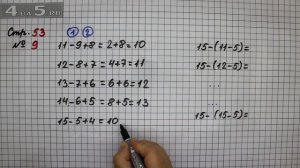 Стр. 53
№ 9
① ②
11-9+8 = 2+8=10
12-8+7 = 4+7=11
13-7+6 = 6+6=12
14-6+5 = 8+5=13
15-5+4 = 10
15-(11-5)=
15-(12-5)=
...
15-(15-5)=